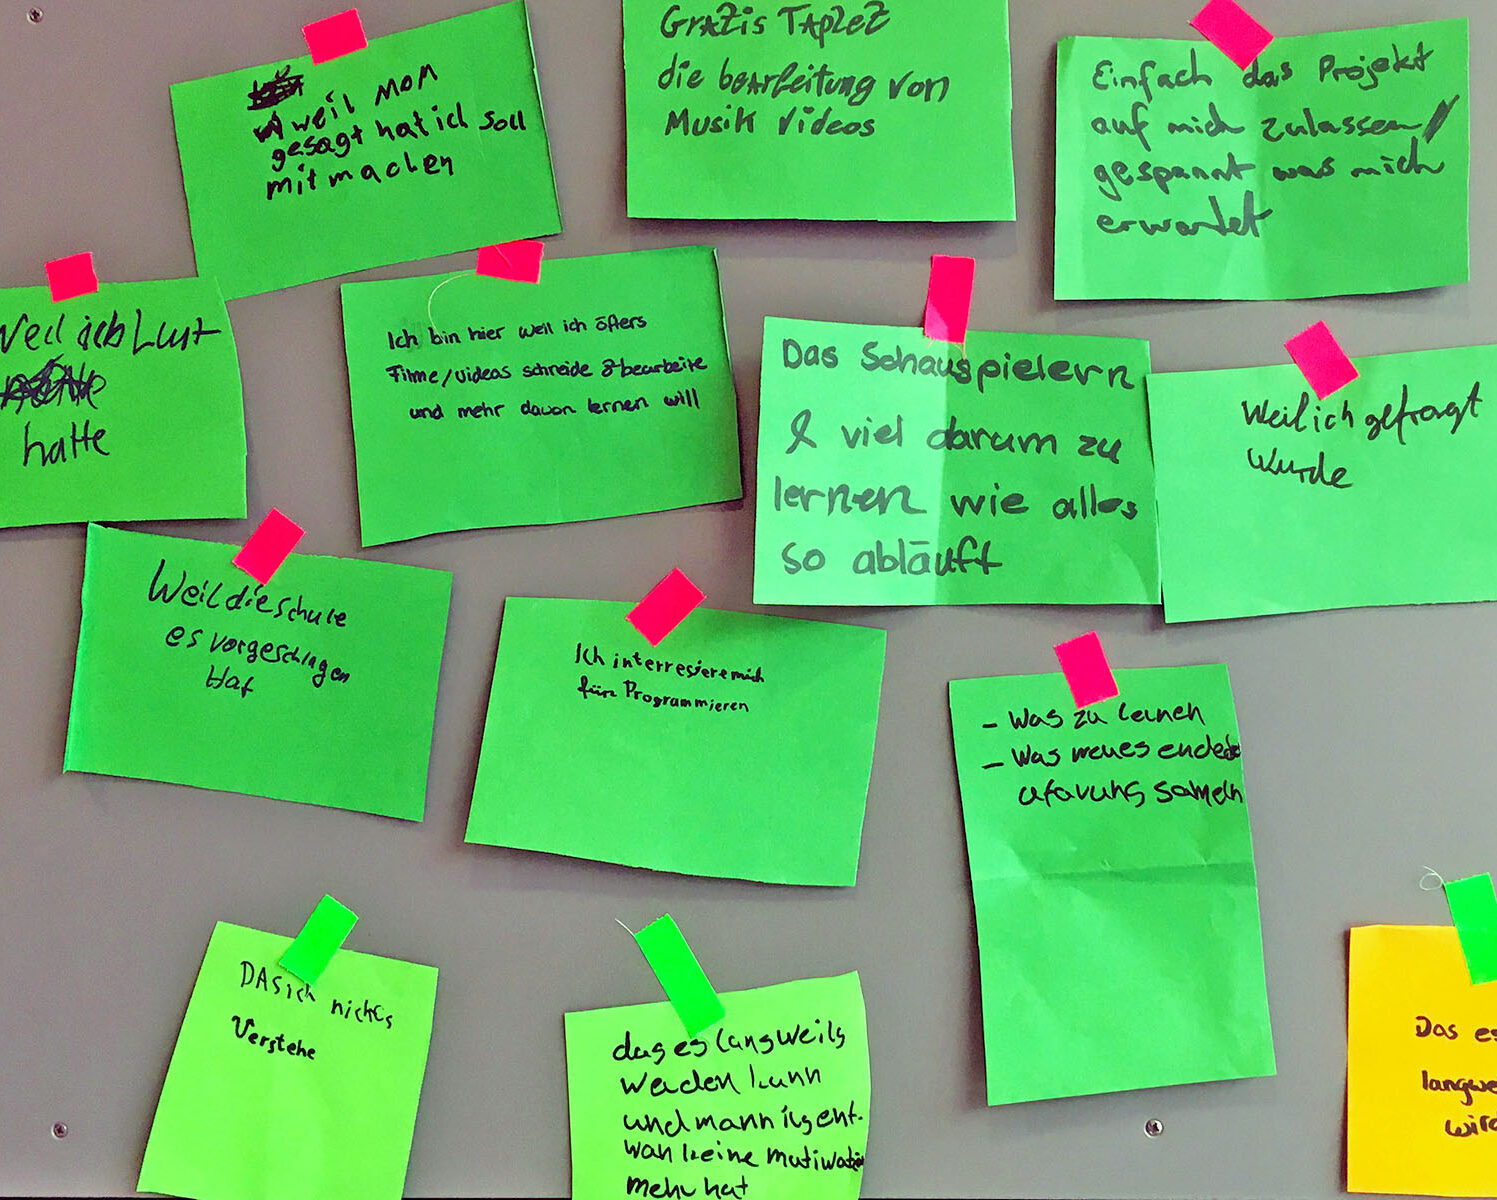 weil MOM
gesagt hat ich soll
mitmachen
GRAZis TApleZ
die beArbeitung von
Musik Videos
Einfach das Projekt
auf mich zulassen/
gespannt was mich
erwartet
Weil ich Lust
hatte
Ich bin hier weil ich öfters
Filme/videos schneide & bearbeite
und mehr davon lernen will
Das Schauspielern
& viel darum zu
lernen wie alles
so abläuft
Weil ich gefragt
wurde
Weil die schule
es vorgeschlagen
Hat
Ich interresiere mich
fürs Programmieren
- Was zu lernen
- Was neues
sameln
DAS ich nichts
Verstehe
das es langweilig
werden kann
und mann
keine
mehr hat
Das es
langwe
wird